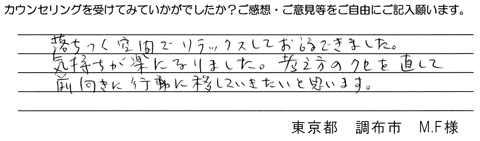 カウンセリングを受けてみていかがでしたか？ご感想・ご意見等をご自由にご記入願います。
落ちつく空間でリラックスしてお話できました。
気持ちが楽になりました。考え方のクセを直して
前向きに行動に移していきたいと思います。
東京都　調布市　M.F様